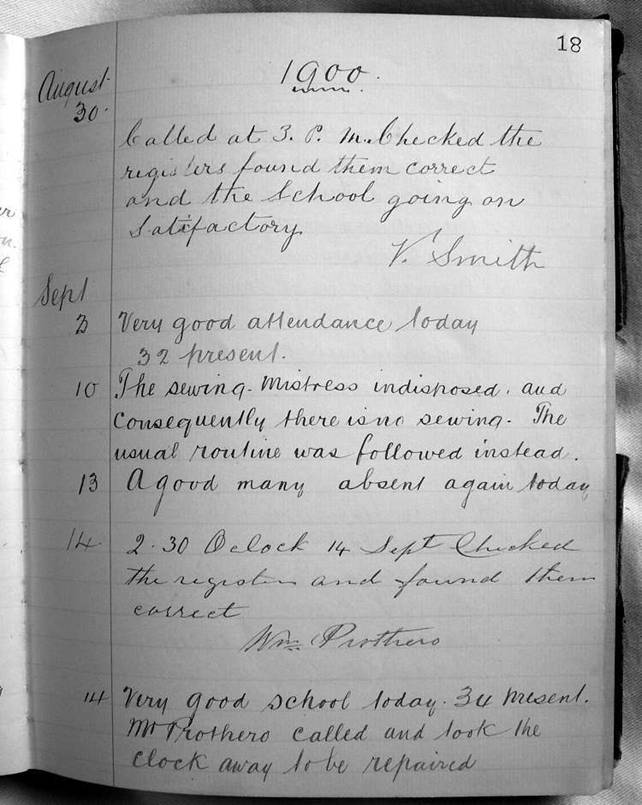 18
1900.
August
30.
Called at 3. P. M. Checked the
registers found them correct
and the School going on
Satifactory
V. Smith
Sept
3 Very good attendance today
32 present.
10 The sewing-Mistress indisposed, and
consequently there is no sewing. The
usual routine was followed instead.
13 A good many absent again today
14 2.30 Oclock 14 Sept Checked
the registers and found them
correct
Wm. Prothero
14 Very good school today. 34 present.
Mr Prothero called and took the
clock away to be repaired